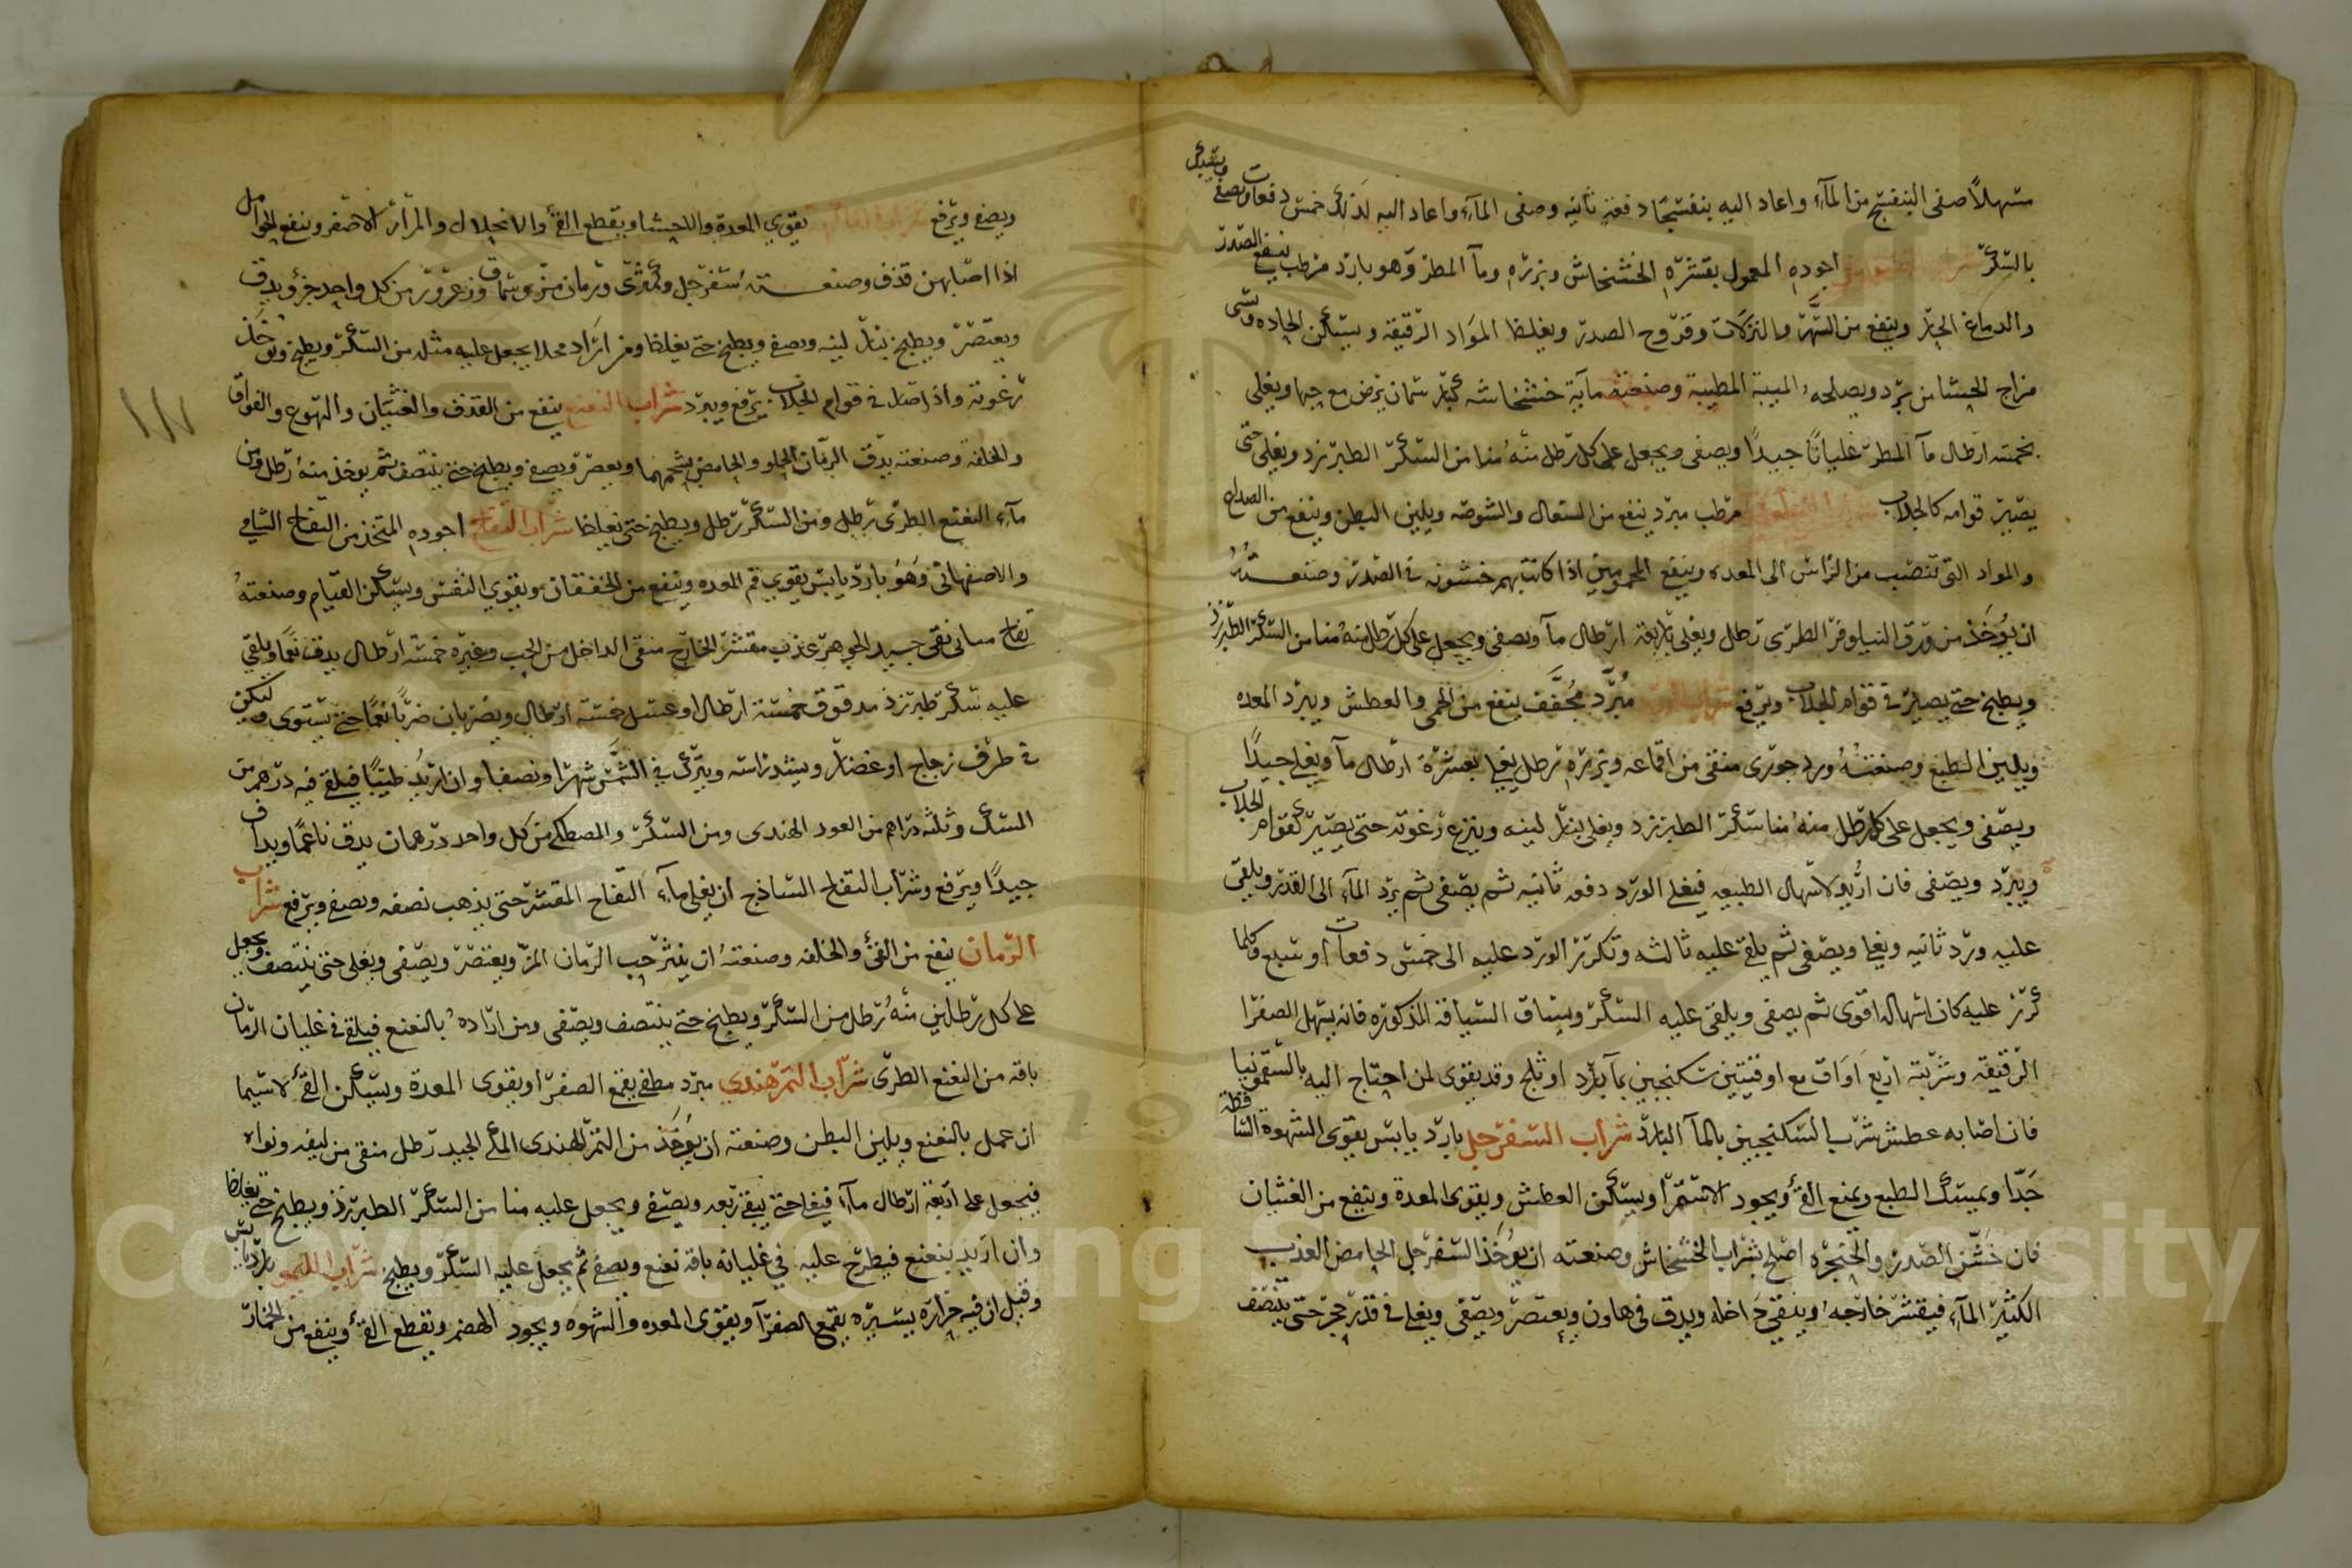 مسهلا صفى البنفسج من الماء واعاد اليه بنفسجا دفعة ثانيه وصفى الماء واعاد اليه كذلك خمس دفعات ويصفى
بالسكر شراب الخشخاش اجوده المعمول بقشره الخشخاش وبزره وماء المطر وهو بارد مرطب ينفع الصدر
والدماغ الحار وينفع من السهر والنزلات وقروح الصدر ويغلظ المواد الرقيقه ويسكن الحاده
مزاج الحشا من برد ويصلحه الميبة المطيبة وصنعته مأية خشخاشه كبار سمان يرض مع حبها ويغلى
بخمسه ارطال ماء المطر غليانا جيدا ويصفى ويجعل على كل رطل منه منا من السكر الطبرزد ويغلى حتى
يصير قوامه كالجلاب شراب النيلوفر مرطب مبرد ينفع من السعال والشوصه ويلين البطن وينفع من الصداع
والمواد التى تنصب من الراس الى المعده وينفع المحمومين اذا كانت بهم خشونه فى الصدر وصنعته
ان يؤخذ من ورق النيلوفر الطرى رطل ويغلى باربعة ارطال ماء ويصفى ويجعل على كل رطل منه منا من السكر الطبرزد
ويطبخ حتى يصير فى قوام الجلاب ويرفع شراب الورد مبرد مجفف ينفع من الحمى والعطش ويبرد المعده
ويلين الطبع وصنعته ورد جورى منقى من اقماعه وبزره رطل يغلى بعشرة ارطال ماء ويغلى جيدا
ويصفى ويجعل على كل رطل منه منا سكر الطبرزد ويغلى بنار لينه وينزع رغوته حتى يصير كقوام الجلاب
ويبرد ويصفى فان اريد لاسهال الطبيعه فيغلى الورد دفعه ثانيه ثم يصفى ثم يرد الماء الى القدر ويلقى
عليه ورد ثانيه ويغلى ويصفى ثم يلقى عليه ثالثه وتكرر الورد عليه الى خمس دفعات او سبع وكلما
كرر عليه كان اسهاله اقوى ثم يصفى ويلقى عليه السكر ويساق السياقه المذكوره فانه يسهل الصفرا
الرقيقه وشربته اربع اواق مع اوقيتين سكنجبين بماء بارد او ثلج وقد يقوى لمن احتاج اليه بالسقمونيا
فان اصابه عطش شرب السكنجبين بالماء البارد شراب السفرجل بارد يابس يقوى الشهوة الساقطه
جدا ويمسك الطبع ويمنع القئ ويجود الاستمرا ويسكن العطش ويقوى المعدة وينفع من الغثيان
فان خشن الصدر والحنجره اصلح بشراب الخشخاش وصنعته ان يؤخذ السفرجل الحامض العذب
الكثير الماء فيقشر خارجه وينقى داخله ويدق فى هاون ويعتصر ويصفى ويغلى فى قدر حجر حتى ينتصف
ويصفى ويرفع شراب الفاكهة يقوي المعدة والاحشا ويقطع القئ والانحلال والمرار الاصفر وينفع الحوامل
اذا اصابهن قذف وصنعته سفرجل وكمثرى ورمان مز وسماق وزعرور من كل واحد جزؤ ويدق
ويعتصر ويطبخ بنار لينه ويصفى ويطبخ حتى يغلظ ومن اراد محلا يجعل عليه مثله من السكر ويطبخ وتؤخذ
رغوته واذا صار فى قوام الجلاب يرفع ويبرد شراب النعنع ينفع من القذف والغثيان والتهوع والفواق
والخلفه وصنعته يدق الرمان الحلو والحامض بشحمهما ويعصر ويصفى ويطبخ حتى ينتصف ثم يؤخذ منه رطل ومن
ماء النعنع الطرى رطل ومن السكر رطل ويطبخ حتى يغلظ شراب التفاح اجوده المتخذ من التفاح الشامى
والاصفهانى وهو بارد يابس يقوي فم المعده وينفع من الخفقان ويقوي النفس ويسكن القيام وصنعته
تفاح نقى جيد الجوهر عذب مقشر الخارج منقى الداخل من الحب وغيره خمسه ارطال يدق نعما ويلقى
عليه سكر طبرزذ مدقوق خمسة ارطال او عسل خمسة ارطال ويضربان ضربا نعما حتى يستوى وليكن
فى ظرف زجاج او غضار ويشد راسه ويترك فى الشمس شهرا ونصفا وان اريد طيبا فيلقى فيه درهم من
السك وثلثه دراهم من العود الهندى ومن السكر والمصطكى من كل واحد درهمان يدق ناعما ويداف
جيدا ويرفع وشراب التفاح الساذج ان يغلى ماء التفاح المقشر حتى يذهب نصفه ويصفى ويرفع شراب
الرمان ينفع من القئ والخلفه وصنعته ان ينثر حب الرمان المز ويعتصر ويصفى ويغلى حتى ينتصف ويجعل
على كل رطلين منه رطل من السكر ويطبخ حتى ينتصف ويصفى ومن اراده بالنعنع فيلقى فى غليان الرمان
باقه من النعنع الطرى شراب التمرهندي مبرد مطفى يقمع الصفرا ويقوى المعدة ويسكن القئ لاسيما
ان عمل بالنعنع ويلين البطن وصنعته ان يؤخذ من التمر الهندى المكى الجيد رطل منقى من ليفه ونواه
فيجعل على اربعة ارطال ماء فيغلى حتى يبقى ربعه ويصفى ويجعل عليه منا من السكر الطبرزذ ويطبخ حتى يغلظ
وان اريد بنعنع فيطرح عليه في غليانه باقه نعنع ويصفى ثم يجعل عليه السكر ويطبخ شراب الليمو بارد يابس
وقيل ان فيه حرارة يسيره يقمع الصفرآ ويقوى المعده والشهوه ويجود الهضم ويقطع القئ وينفع من الخمار
Copyright © King Saud University